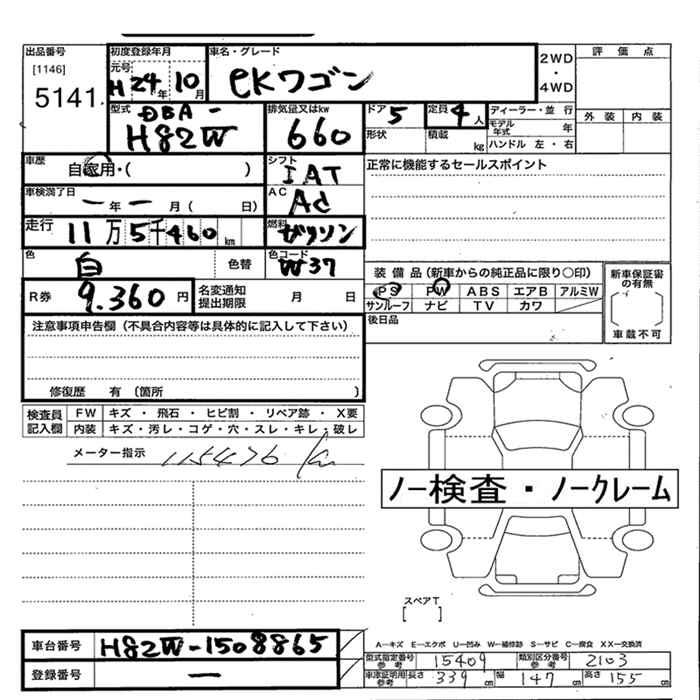 出品番号
[1146]
5141
初度登録年月
元号
H24年10月
車名・グレード
eKワゴン
2WD
・
4WD
評価点
外装 内装
型式
DBA-
H82W
排気量又はkw
660
ドア 5
形状
定員 4人
積載 kg
ディーラー・並行
モデル年式 年
ハンドル 左・右
車歴
自家用・( )
シフト
IAT
正常に機能するセールスポイント
車検満了日
ー年ー月( 日)
AC
AC
走行
11万5千460km
燃料
ガソリン
色
白
色替
色コード
W37
R券 9.360円
名変通知
提出期限 月 日
装備品(新車からの純正品に限り○印)
PS PW ABS エアB アルミW
サンルーフ ナビ TV カワ
後日品
新車保証書
の有無
車載不可
注意事項申告欄(不具合内容等は具体的に記入して下さい)
修復歴 有〔箇所 〕
検査員
記入欄
FW キズ・飛石・ヒビ割・リペア跡・X要
内装 キズ・汚レ・コゲ・穴・スレ・キレ・破レ
メーター指示 115476 km
ノー検査・ノークレーム
スペアT
[ ]
車台番号 H82W-1508865
登録番号 ー
A―キズ E―エクボ U―凹み W―補修跡 S―サビ C―腐食 XX―交換済
型式指定番号
参考
15409
類別区分番号
参考
2103
車庫証明用
参考
長さ 339cm 幅 147cm 高さ 155cm